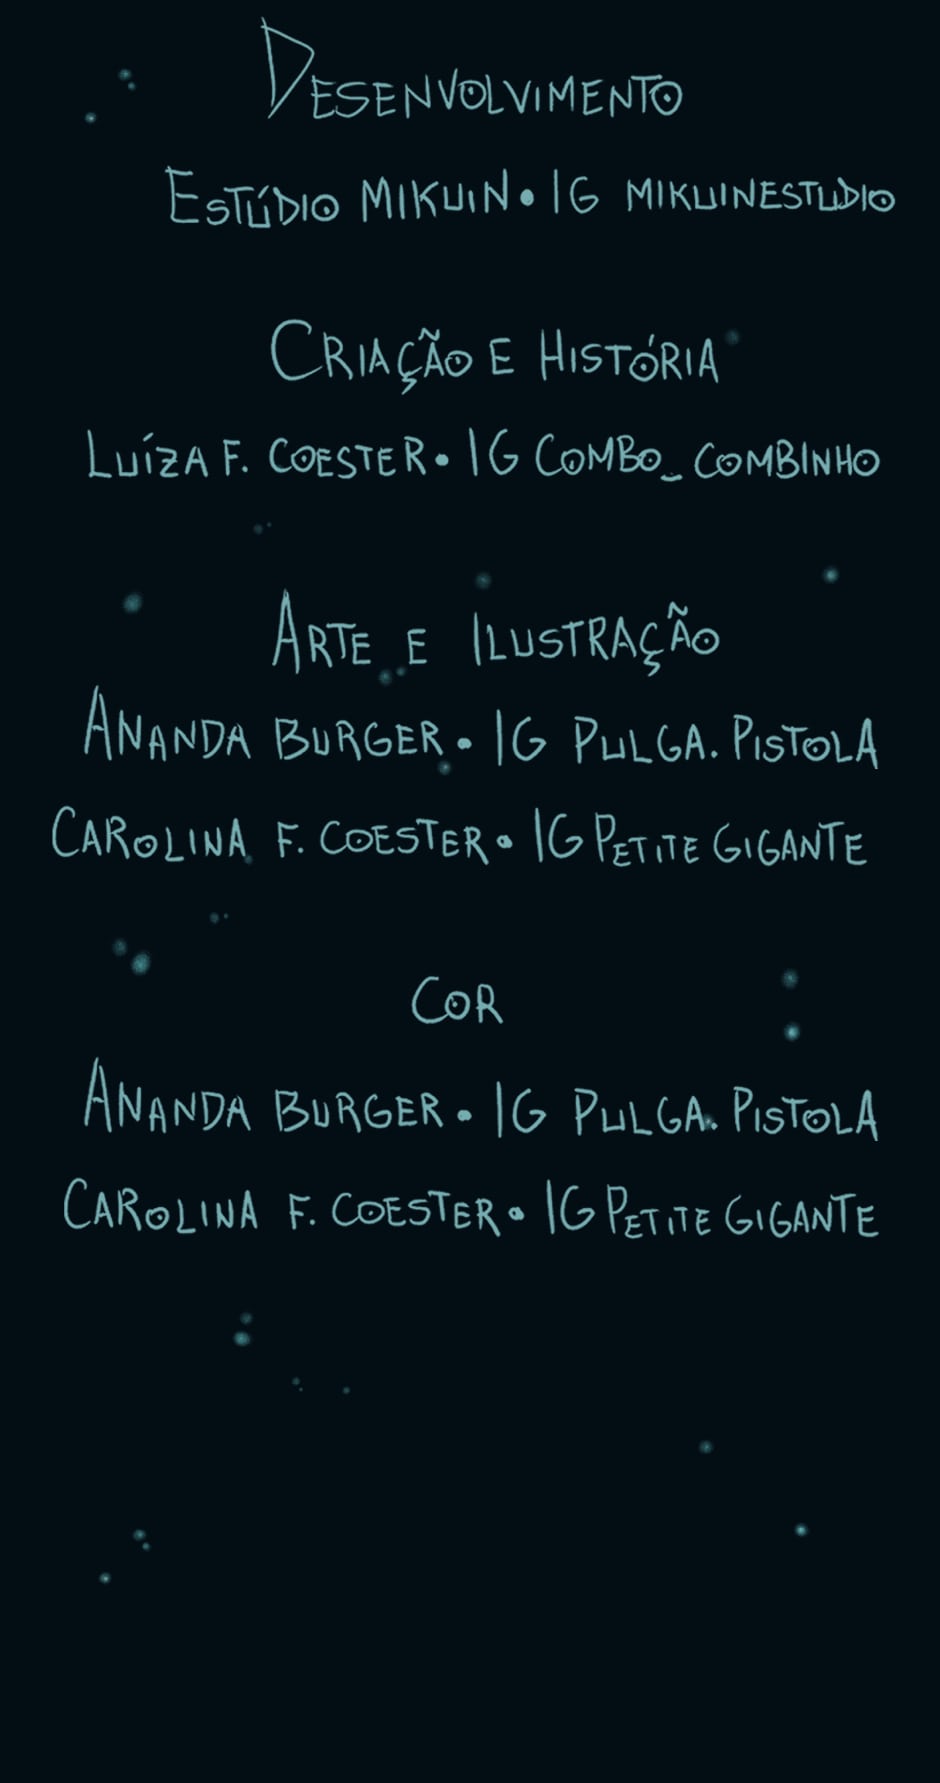 Desenvolvimento
Estúdio Mikuin • IG mikuinestudio
Criação e História
Luíza F. Coester • IG combo_combinho
Arte e Ilustração
Ananda Burger • IG pulga.pistola
Carolina F. Coester • IG Petite Gigante
Cor
Ananda Burger • IG pulga.pistola
Carolina F. Coester • IG Petite Gigante